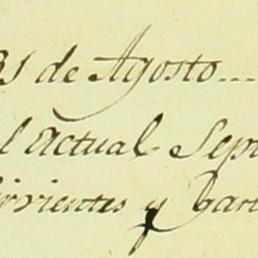 31 de Agosto...
l actual Sep
irvientes y Gar